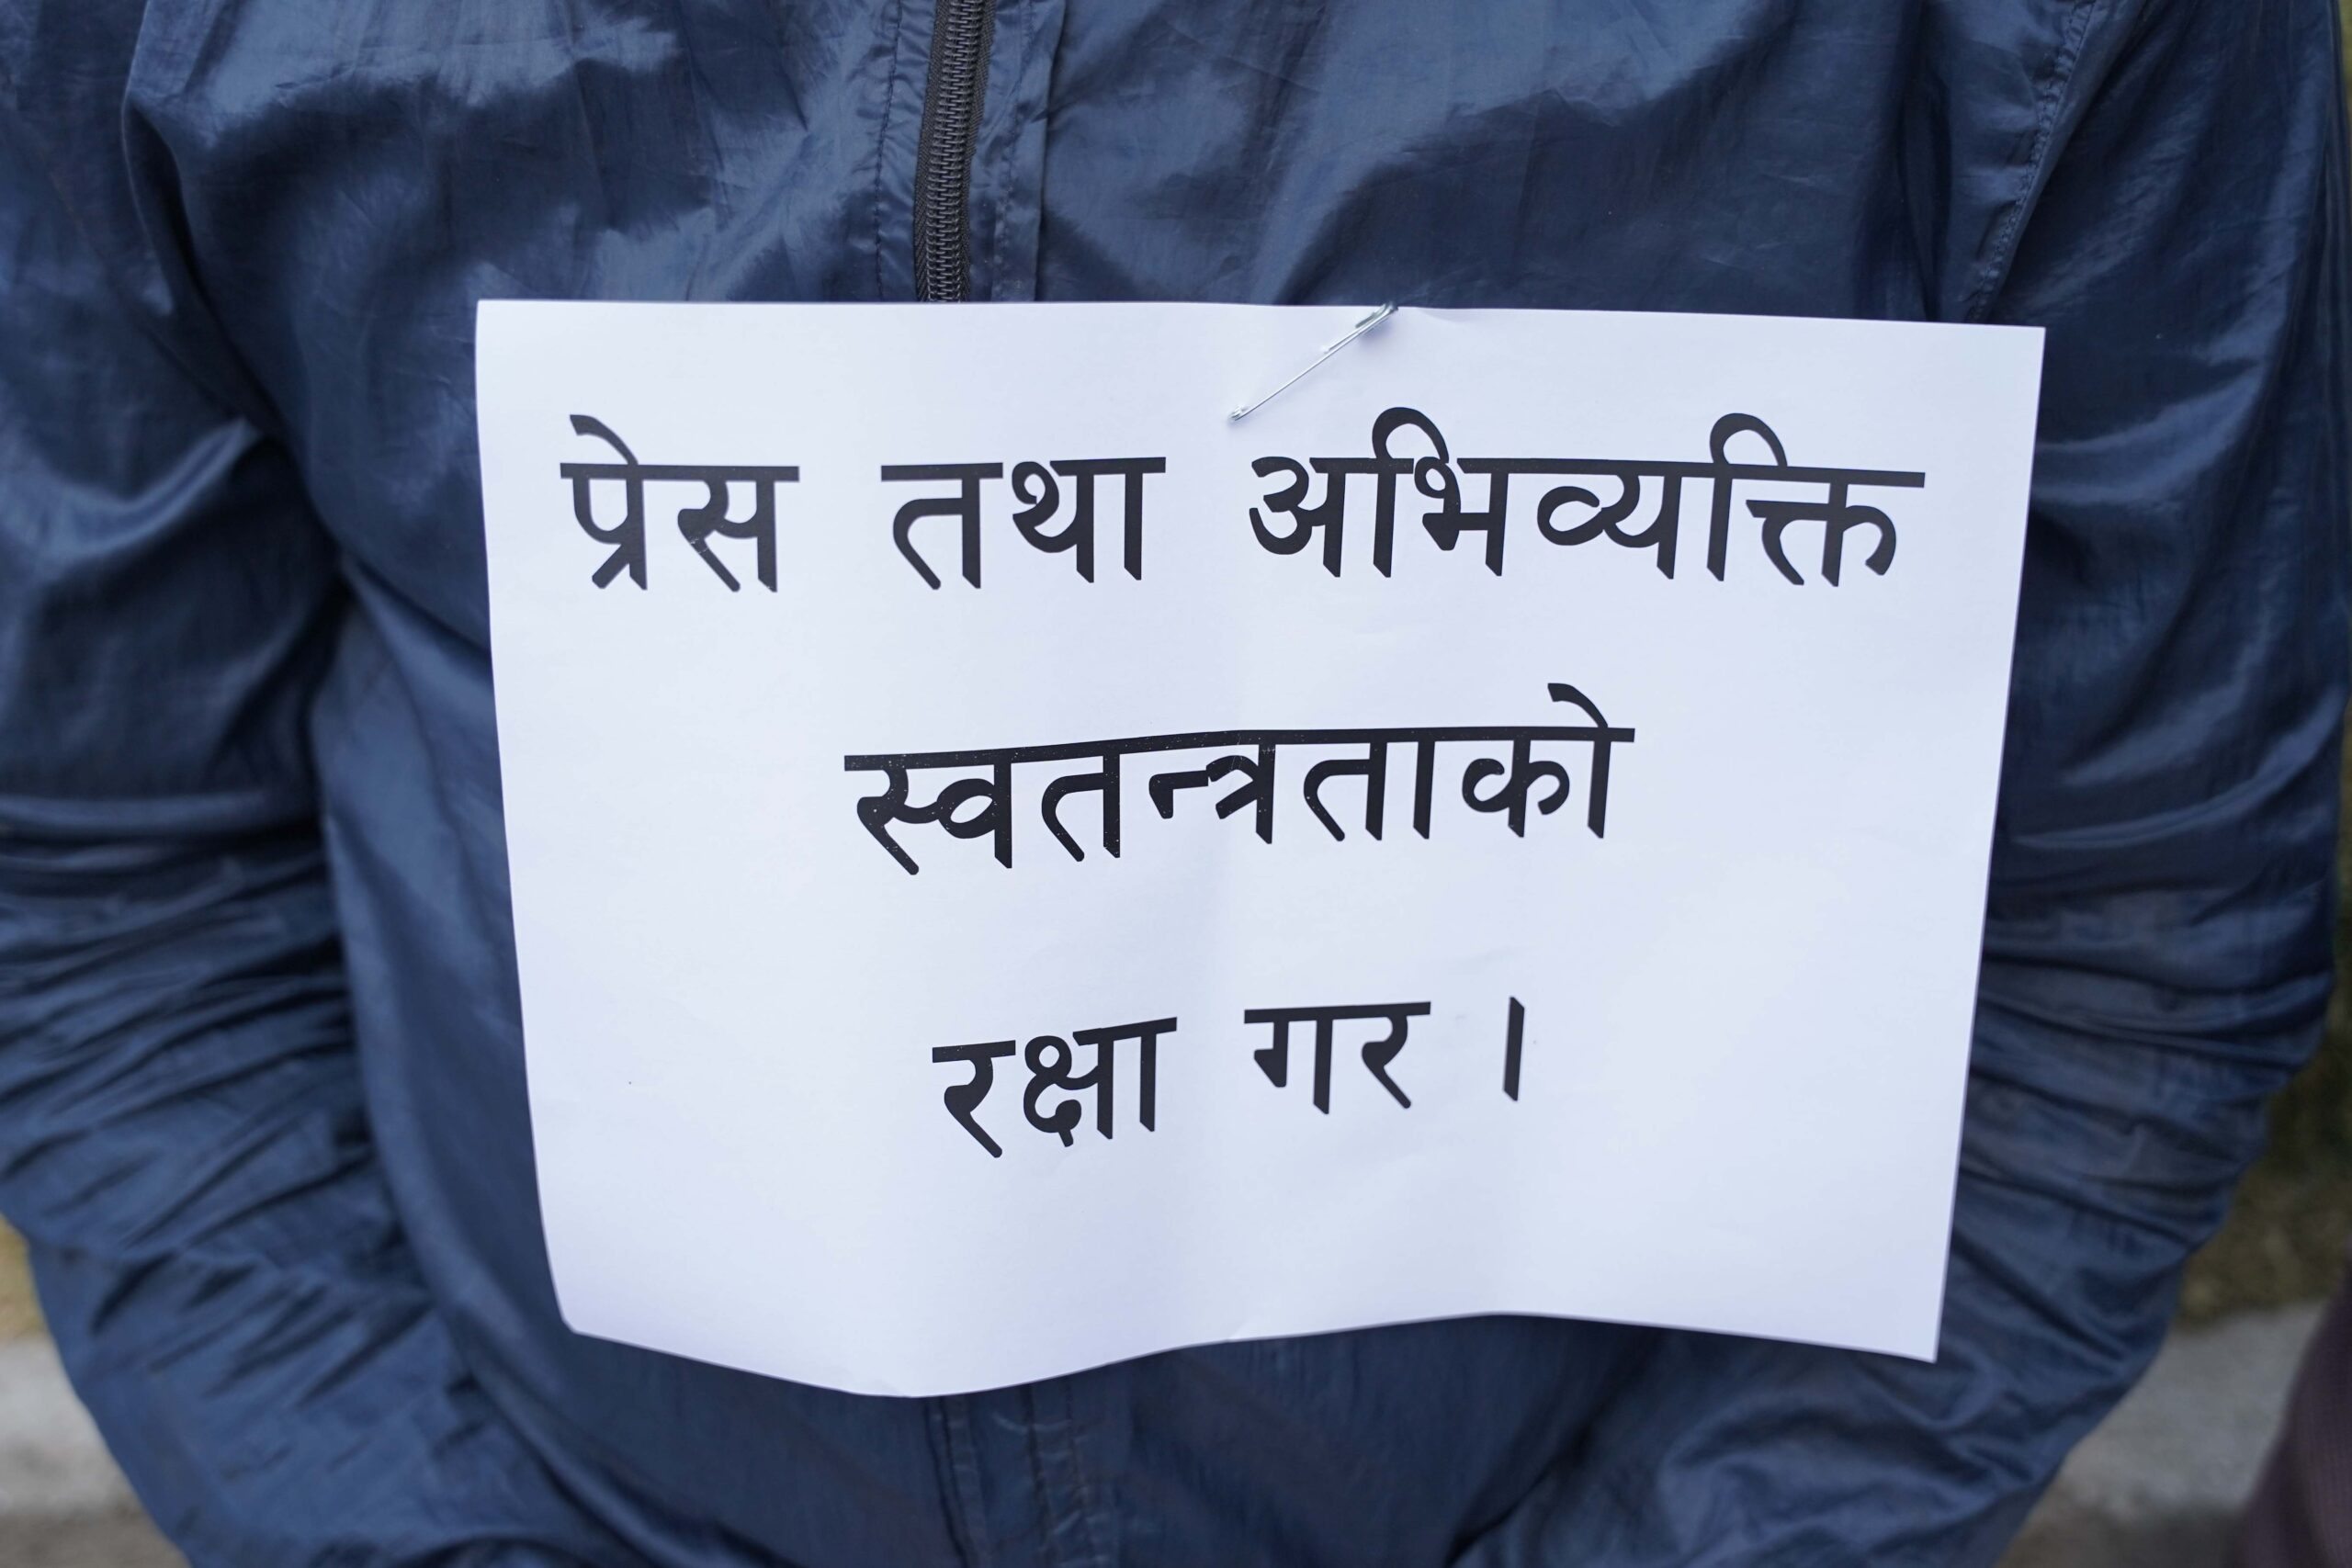 प्रेस तथा अभिव्यक्ति
स्वतन्त्रताको
रक्षा गर ।